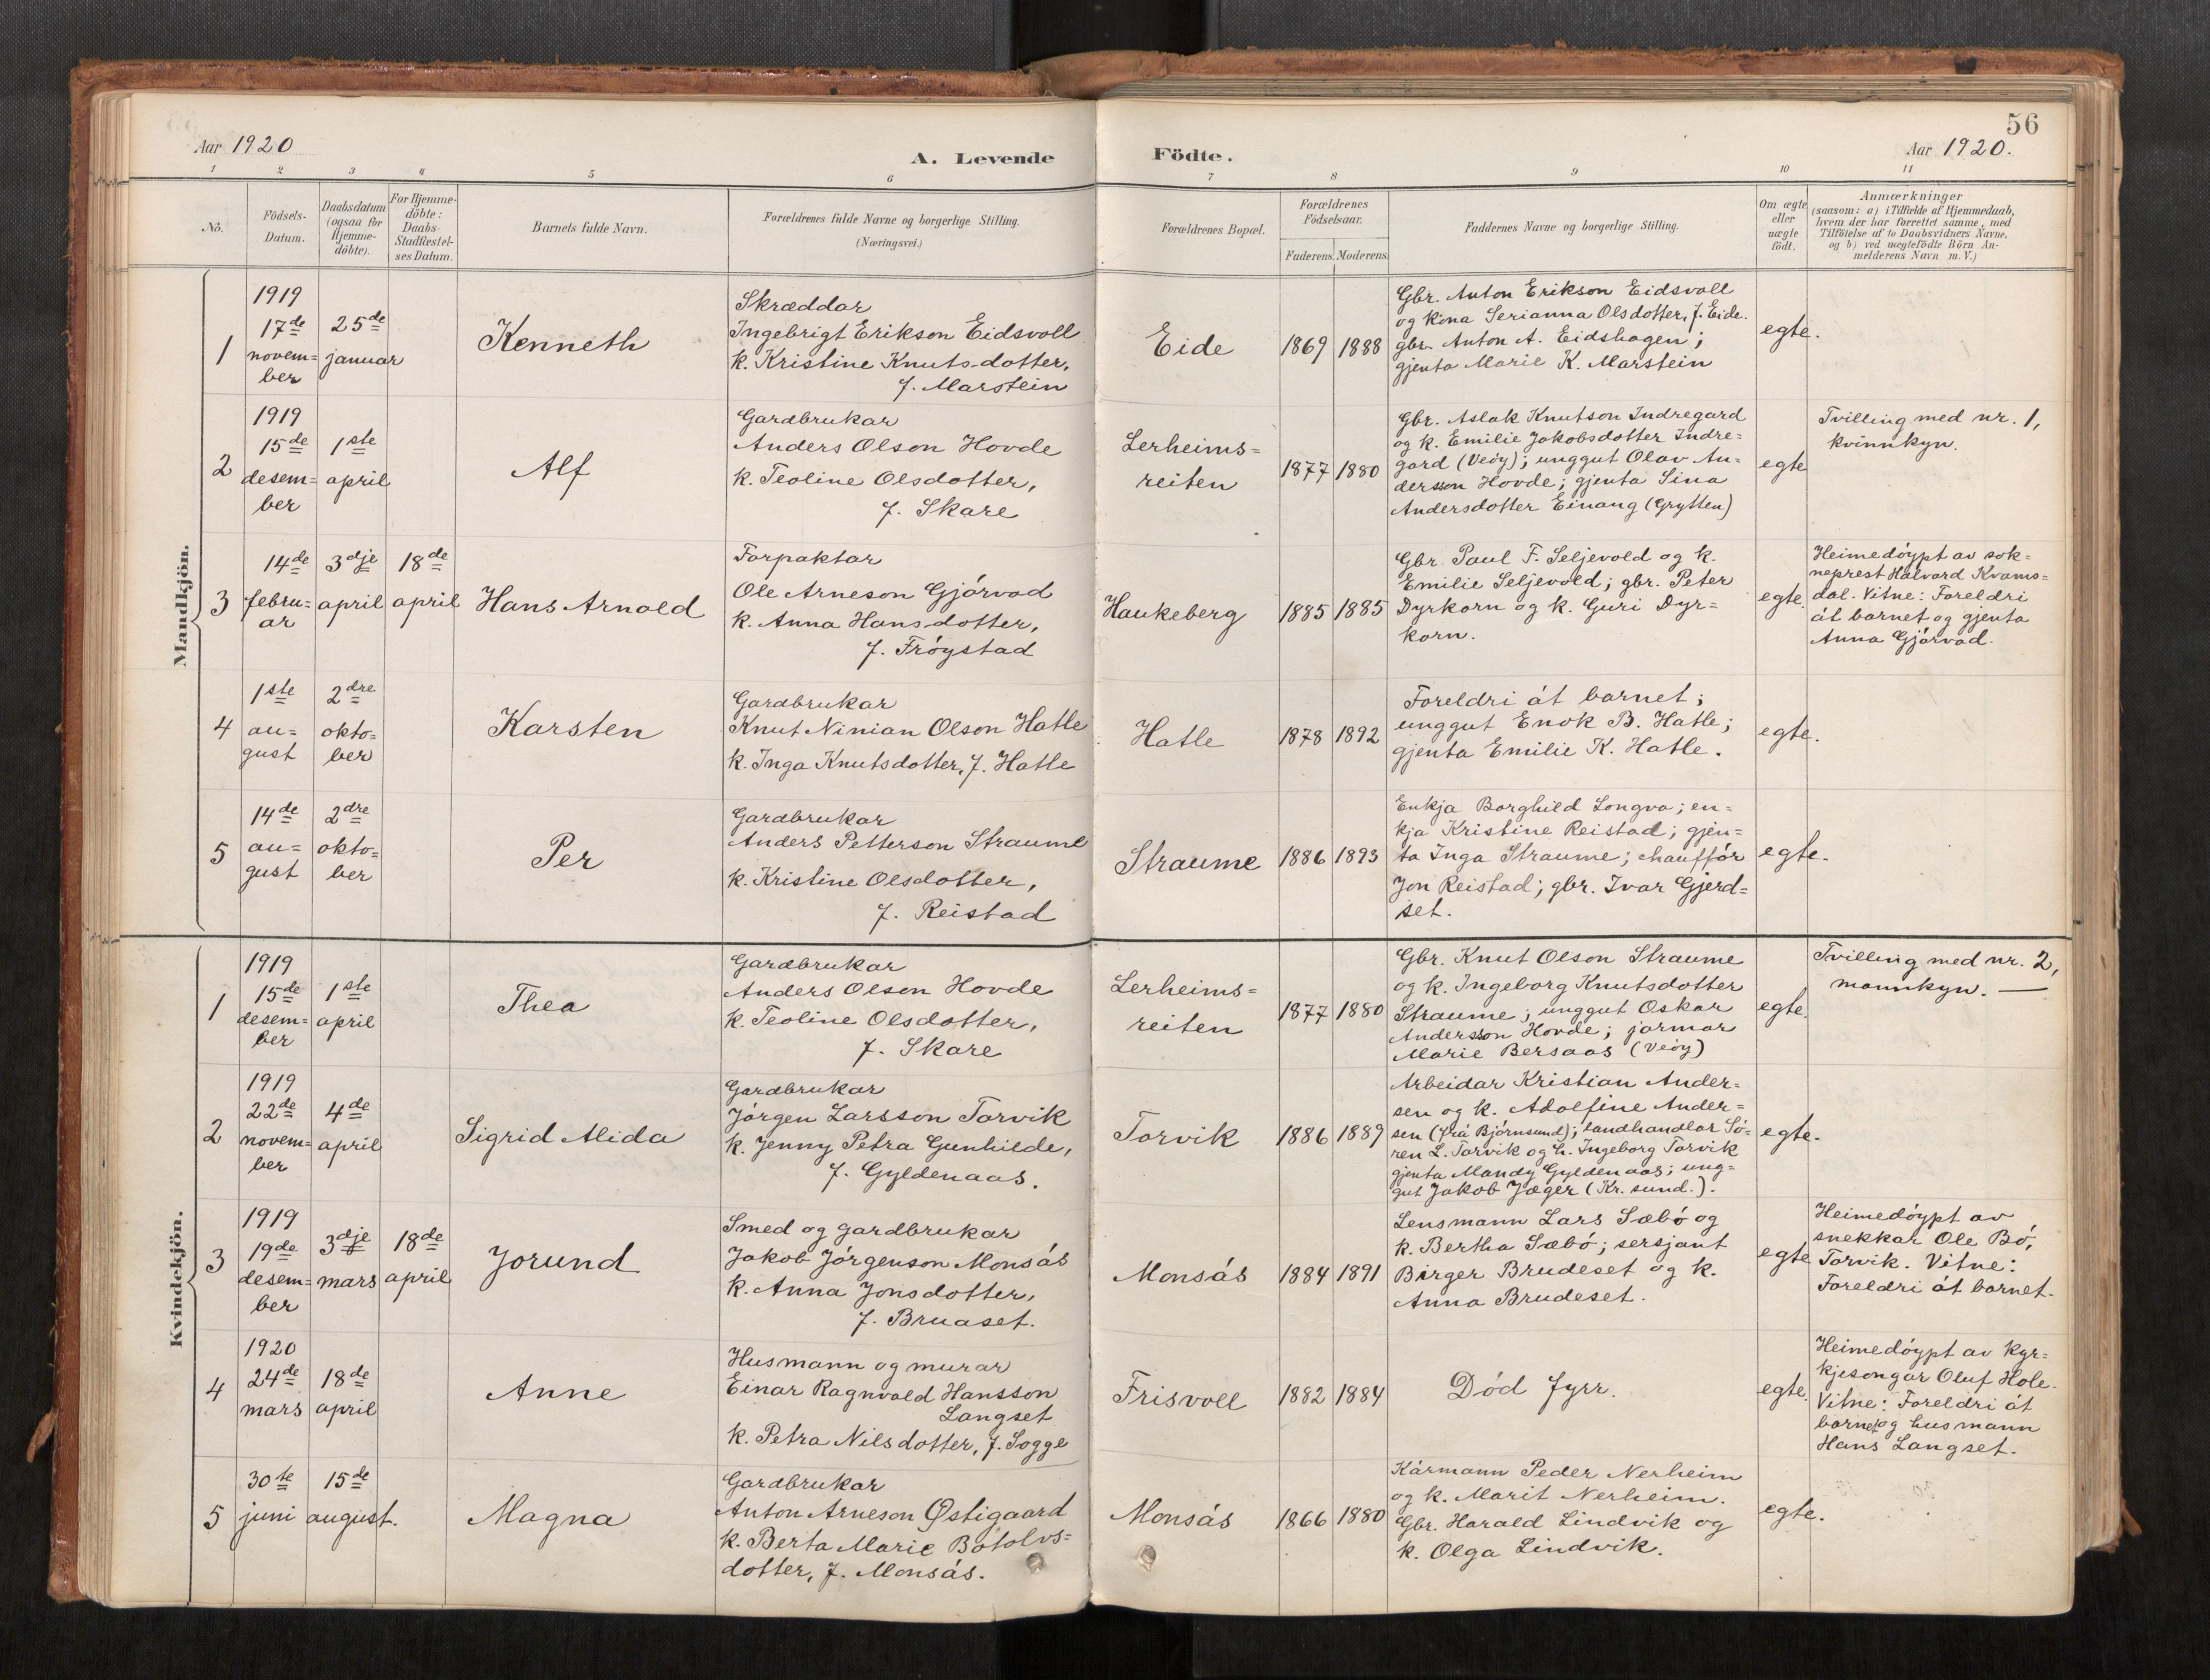 56
Aar 1920
A. Levende
Födte.
Aar 1920.
1 2 3 4 5 6 7 8 9 10 11
No.
Födsels-
Datum.
Daabsdatum
(ogsaa for
Hjemme-
döbte).
For Hjemme-
döbte:
Daabs-
Stadfæstel-
ses Datum.
Barnets fulde Navn.
Forældrenes fulde Navne og borgerlige Stilling.
(Næringsvei.)
Forældrenes Bopæl.
Forældrenes
Födselsaar.
Faderens. Moderens.
Faddernes Navne og borgerlige Stilling.
Om ægte
eller
uægte
födt.
Anmærkninger
(saasom: a) i Tilfælde af Hjemmedaab,
hvem der har forrettet samme, med
Tilföielse af to Daabsvidners Navne,
og b) ved uægtefödte Börn An-
melderens Navn m. V.)
Mandkjön.
1
1919
17de
novem=
ber
25de
januar
Kenneth
Skræddar
Ingebrigt Erikson Eidsvoll
k. Kristine Knutsdotter,
f. Marstein
Eide
1869
1888
Gbr. Anton Erikson Eidsvoll
og kona Serianna Olsdotter, f. Eide.
gbr. Anton A. Eidshagen;
gjenta Marie K. Marstein
egte.
2
1919
15de
desem=
ber
1ste
april
Alf
Gardbrukar
Anders Olson Hovde
k. Teoline Olsdotter,
f. Skare
Lerheims=
reiten
1877
1880
Gbr. Aslak Knutson Indregard
og k. Emilie Jakobsdotter Indre=
gard (Veöy); unggut Olav An=
dersson Hovde; gjenta Sina
Andersdotter Einang (Grytten)
egte
Tvilling med nr. 1,
kvinnkyn.
3
14de
febru=
ar
3dje
april
18de
april
Hans Arnold
Forpaktar
Ole Arneson Gjörvad
k. Anna Hansdotter,
f. Fröystad
Haukeberg
1885
1885
Gbr. Paul F. Seljevold og k.
Emilie Seljevold; gbr. Peter
Dyrkorn og k. Guri Dyr=
korn.
egte.
Heimedöypt av sok=
neprest Halvard Kvams=
dal. Vitne: Foreldri
åt barnet og gjenta
Anna Gjörvad.
4
1ste
au=
gust
2dre
okto=
ber
Karsten
Gardbrukar
Knut Ninian Olson Hatle
k. Inga Knutsdotter, f. Hatle
Hatle
1878
1892
Foreldri åt barnet;
unggut Enok B. Hatle;
gjenta Emilie K. Hatle.
egte.
5
14de
au=
gust
2dre
okto=
ber
Per
Gardbrukar
Anders Petterson Straume
k. Kristine Olsdotter,
f. Reistad
Straume
1886
1893
Enkja Borghild Longva; en=
kja Kristine Reistad; gjen=
ta Inga Straume; chafför
Jon Reistad; gbr. Ivar Gjerd=
set.
egte.
Kvindekjön.
1
1919
15de
desem=
ber
1ste
april
Thea
Gardbrukar
Anders Olson Hovde
k. Teoline Olsdotter,
f. Skare
Lerheims=
reiten
1877
1880
Gbr. Knut Olson Straume
og k. Ingeborg Knutsdotter
Straume; unggut Oskar
Andersson Hovde; jormor
Marie Bersaas (Veöy)
egte.
Tvilling med nr. 2,
mannkyn. —
2
1919
22de
novem=
ber
4de
april
Sigrid Alida
Gardbrukar
Jörgen Larsson Torvik
k. Jenny Petra Gunhilde,
f. Gyldenaas.
Torvik
1886
1889
Arbeidar Kristian Ander=
sen og k. Adolfine Ander=
sen (frå Björnsund); landhandlar Sö=
ren L. Torvik og h. Ingeborg Torvik
gjenta Mandy Gyldenaas; ung=
gut Jakob Jæger (Kr. sund.).
egte.
3
1919
19de
desem=
ber
3dje
mars
18de
april
Jorund
Smed og gardbrukar
Jakob Jörgenson Monsås
k. Anna Jonsdotter,
f. Bruaset.
Monsås
1884
1891
Lensmann Lars Sæbö og
k. Bertha Sæbö; sersjant
Birger Brudeset og k.
Anna Brudeset.
egte
Heimedöypt av
snekkar Ole Bö,
Torvik. Vitne:
Foreldri åt barnet.
4
1920
24de
mars
18de
april
Anne
Husmann og murar
Einar Ragnvald Hansson
Langset
k. Petra Nilsdotter, f. Sogge
Frisvoll
1882
1884
Död fyrr.
egte.
Heimedöypt av kyr=
kjesongar Oluf Hole.
Vitne: Foreldri åt
barnet og husmann
Hans Langset.
5
30te
juni
15de
august.
Magna
Gardbrukar
Anton Arneson Østigaard
k. Berta Marie Botolvs=
dotter, f. Monsås.
Monsås
1866
1880
Kårmann Peder Nerheim
og k. Marit Nerheim.
Gbr. Harald Lindvik og
k. Olga Lindvik.
egte.